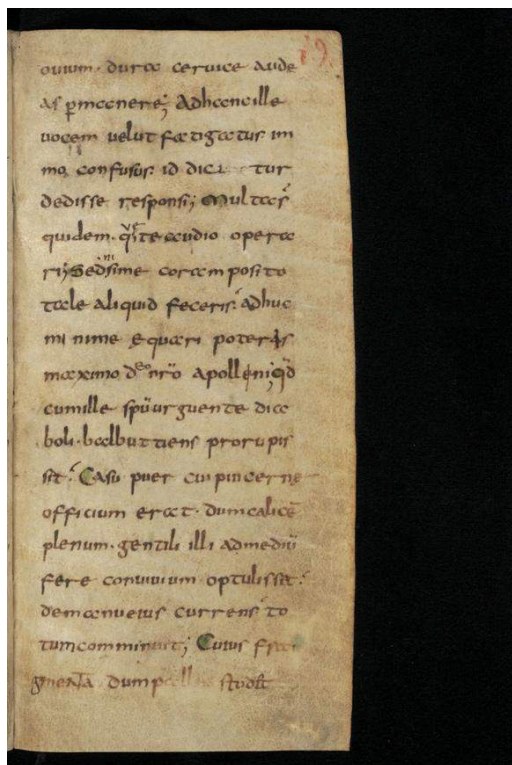 19.
ouium · dura ceruice aude
as ꝑmanere; Adhancille
uocem uelut fatigatus im
mo confusus id dic tur
dedisse responsi; Multas
quidem · q̄ste audio opera
ri; Sed si me coram posito
tale aliquid feceris · adhuc
minime ęquari poteris
maximo dõ nr̄o apollini; qd̄
cumille spū urguente dia
boli · balbuttiens prorupis
sit · Casu puer cui pincernę
officium erat · dumcalicē
plenum · gentili illi admediū
fere conuiuium optulisset ·
demanueius currens to
tumcomminuit; Cuius frag
menta dum studet